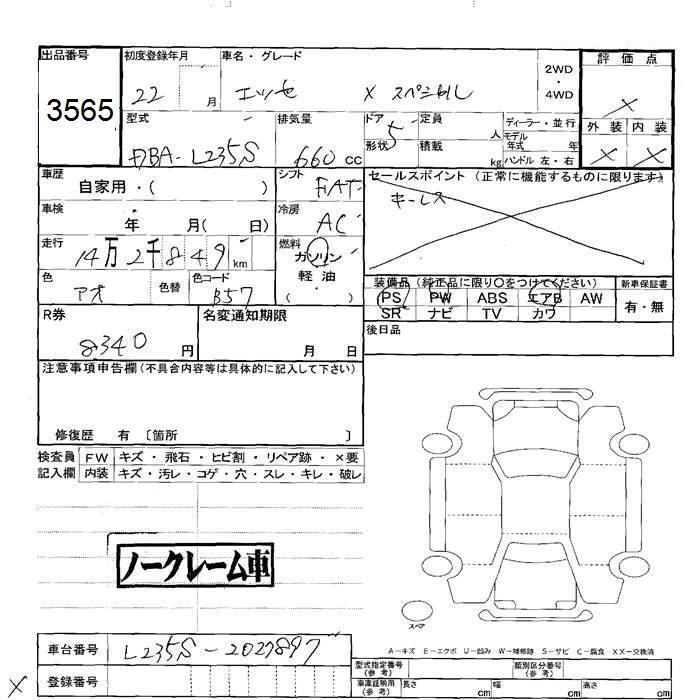 出品番号 初度登録年月 車名・グレード 評価点
3565 22 月 エッセ X スペシャル 2WD・4WD X
型式 排気量 ドア 定員 ディーラー・並行 外装 内装
DBA-L235S 660 cc 5 形状 人 積載 kg モデル年式 年 ハンドル 左・右 X X
車歴 自家用・( ) シフト FAT セールスポイント (正常に機能するものに限ります)
キーレス
車検 年 月( 日) 冷房 AC
走行 14万2千849 km 燃料 ガソリン 軽油・( )
色 アオ 色替 色コード B57
装備品 (純正品に限り〇をつけてください) 新車保証書
PS PW ABS エアB AW 有・無
SR ナビ TV カワ
R券 8340 円 名変通知期限 月 日 後日品
注意事項申告欄(不具合内容等は具体的に記入して下さい)
修復歴 有 〔箇所 〕
検査員記入欄 FW キズ・飛石・ヒビ割・リペア跡・×要
内装 キズ・汚レ・コゲ・穴・スレ・キレ・破レ
ノークレーム車
スペア
A-キズ E-エクボ U-凹み W-補修跡 S-サビ C-腐食 XX-交換済
車台番号 L235S-2027897
型式指定番号(参考) 類別区分番号(参考)
X 登録番号 車庫証明用(参考) 長さ cm 幅 cm 高さ cm